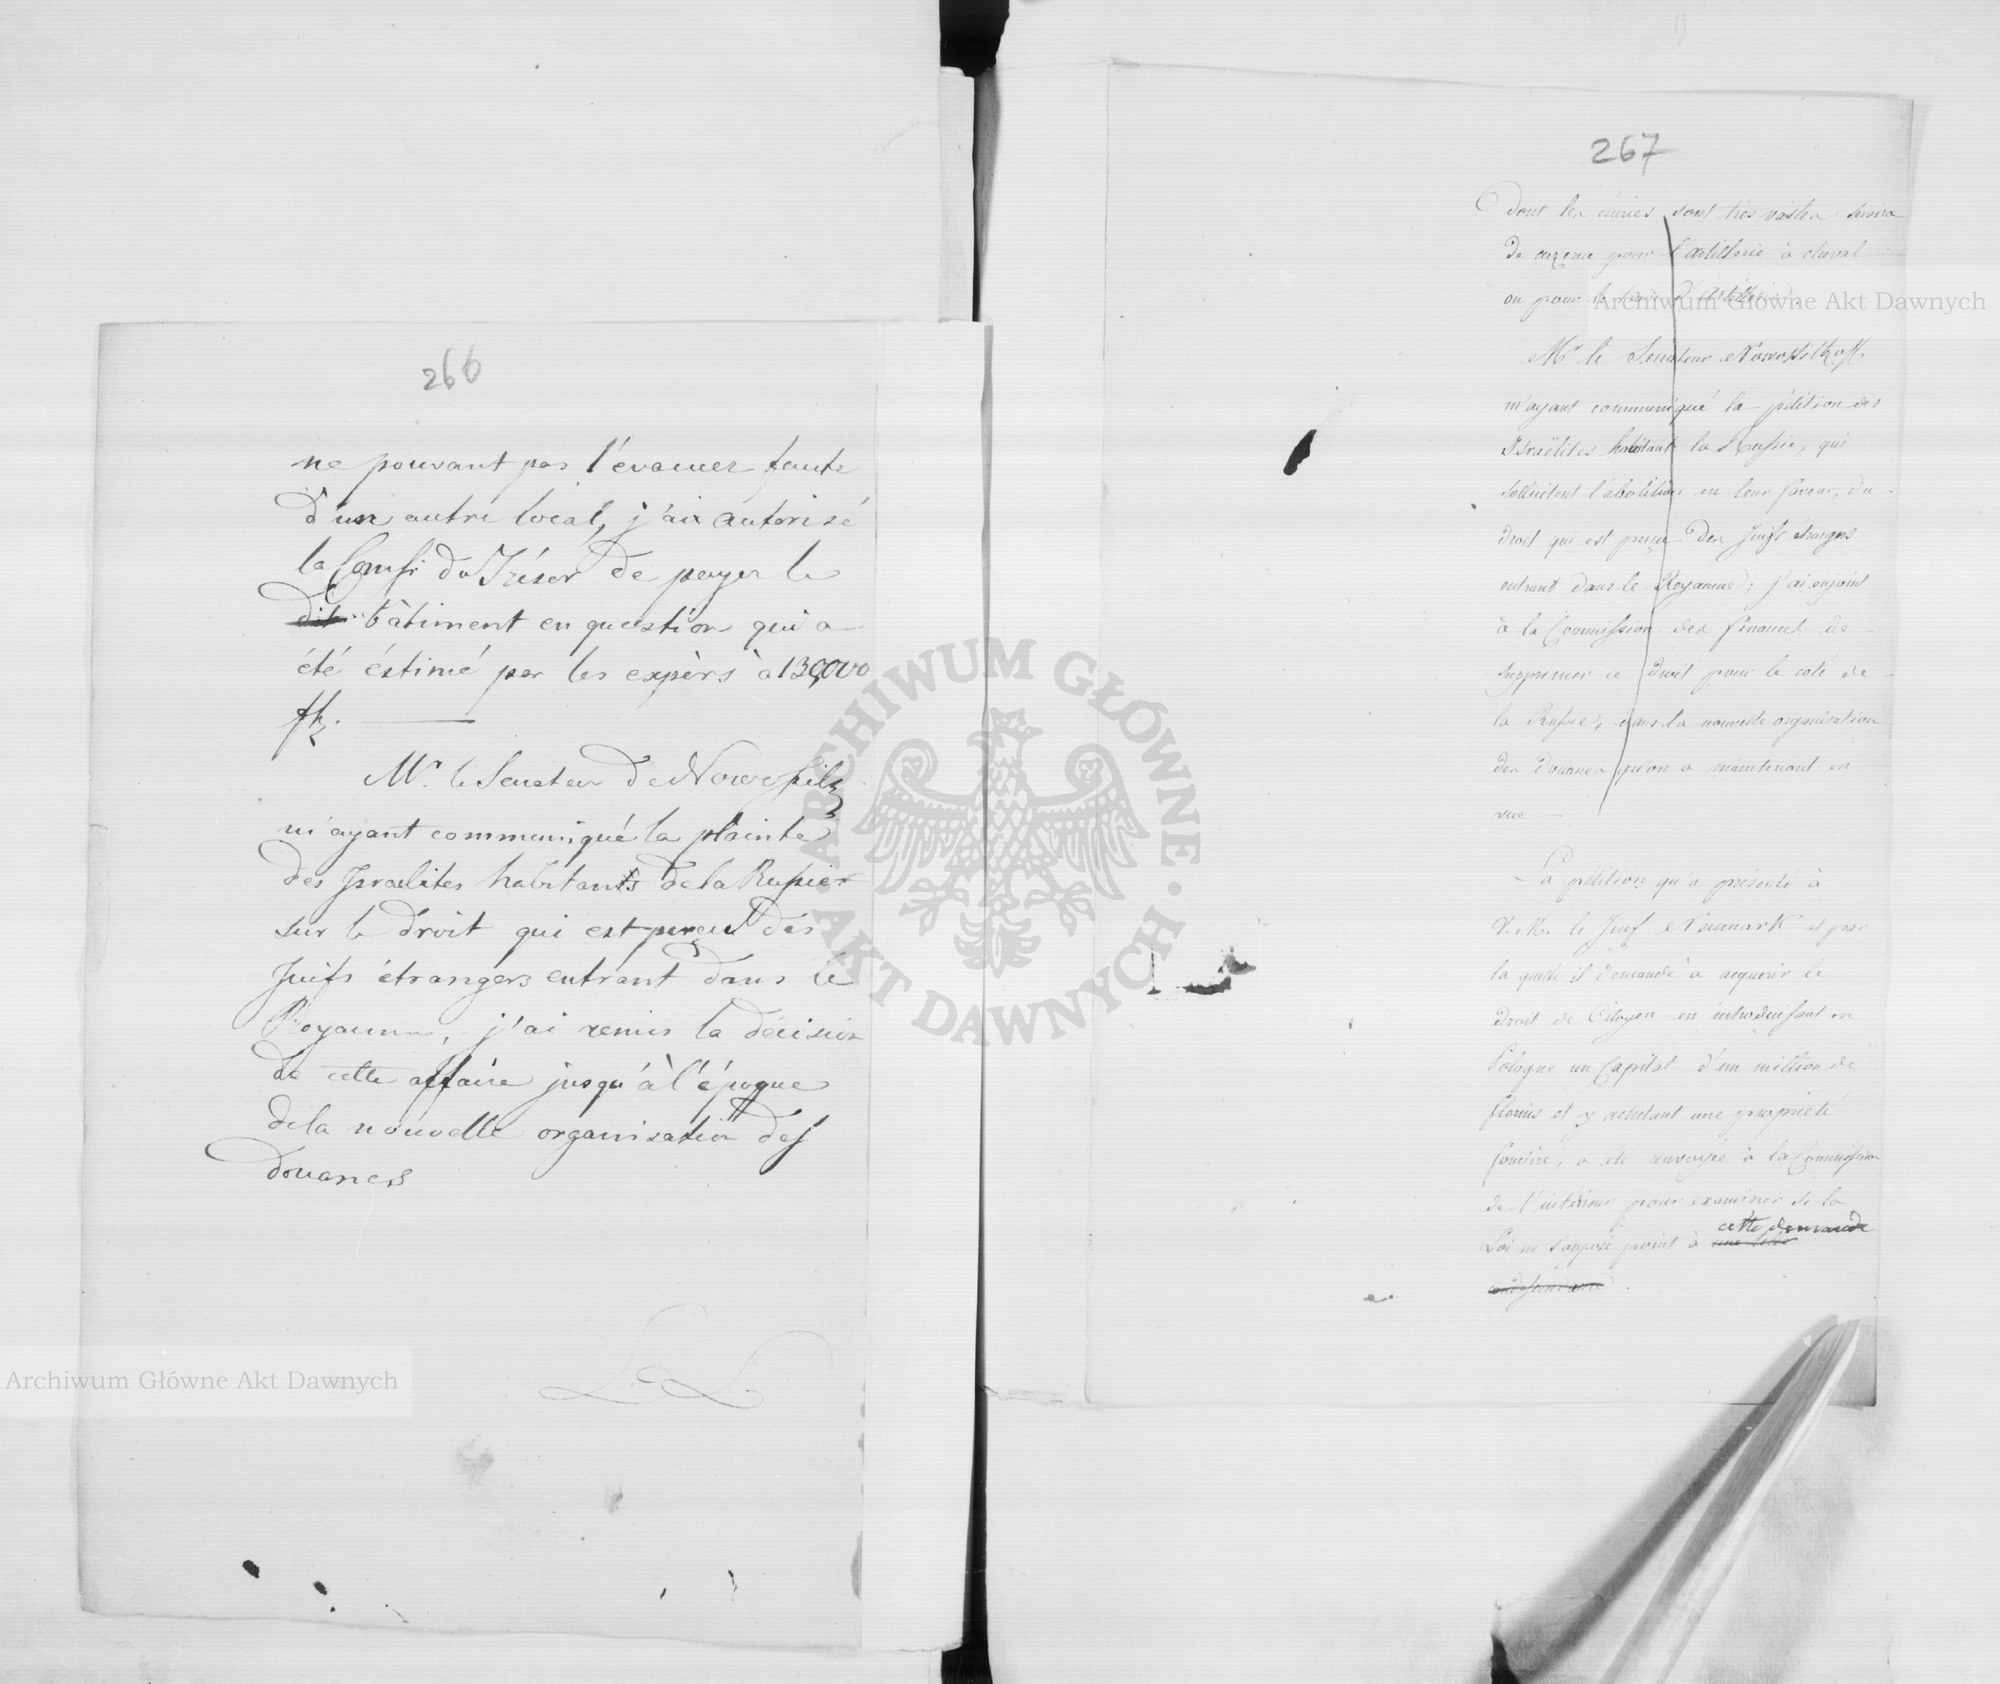 266
ne pouvant pas l'evacuer faute
d'un autre local, j'ai autorisé
la Comsi du Trésor de payer le
dit bâtiment en question qui a
été éstimé par les expèrs à 130,000
fl.
Mr. le Senateur de Nowosilz
m'ayant communiqué la plainte
des Israelites habitants de la Russie
sur le droit qui est perçu des
Juifs étrangers entrant dans le
Royaume, j'ai remis la décision
de cette affaire jusqu'à l'époque
de la nouvelle organisation des
douanes
267
dont les écuries sont très vastes servira
de cazerne pour l'artillerie à cheval
ou pour le train d'artillerie.
Mr le Senateur Nowossiltzoff
m'ayant communiqué la pétition des
Israëlites habitant la Russie, qui
sollicitent l'abolition en leur faveur, du
droit qui est perçu des Juifs etrangers
entrant dans le Royaume; j'ai enjoint
à la Commission des finances de
supprimer ce droit pour le coté de
la Russie, dans la nouvelle organisation
des Douanes qu'on a maintenant en
vue
La pétition qu'a présenté à
V. M. le Juif Neumark et par
la quelle il demande à acquerir le
droit de Citoyen en introduisant en
Pologne un Capital d'un million de
florins et y achetant une propriété
foncière, a été renvoyée à la Commission
de l'intérieur pour examiner si la
Loi ne s'oppose point à une telle cette demande
condescendance.
Archiwum Główne Akt Dawnych
Archiwum Główne Akt Dawnych
ARCHIWUM GŁÓWNE · AKT DAWNYCH ·